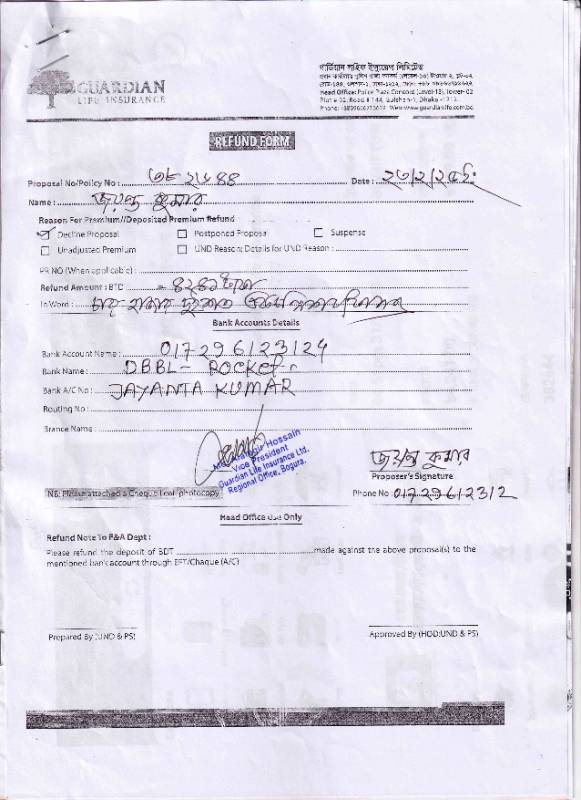 GUARDIAN
LIFE INSURANCE
গার্ডিয়ান লাইফ ইন্স্যুরেন্স লিমিটেড
Head Office: Police Plaza Concord (Level-13), Tower-02
Plot # 02, Road # 144, Gulshan-1, Dhaka -1212.
REFUND FORM
Proposal No/Policy No : Date :
Name : জয়ন্ত কুমার
Reason For Premium//Deposited Premium Refund
Decline Proposal Postponed Proposal Suspense
Unadjusted Premium UND Reason: Details for UND Reason :
PR NO (When applicable) :
Refund Amount : BTC
In Word : চার হাজার দুইশত
Bank Accounts Details
Bank Account Name : 017296123124
Bank Name : DBBL - Rocket
Bank A/C No : JAYANTA KUMAR
Routing No :
Brance Name :
Hossain
Vice President
Guardian Life Insurance Ltd.
Regional Office, Bogura.
জয়ন্ত কুমার
Proposer's Signature
NB: Please attached a Cheque Leaf photocopy
Phone No : 01729612312
Head Office Use Only
Refund Note To P&A Dept :
Please refund the deposit of BDT made against the above proposal(s) to the
mentioned bank account through EFT/Chaque (A/C)
Prepared By (UND & PS) Approved By (HOD:UND & PS)